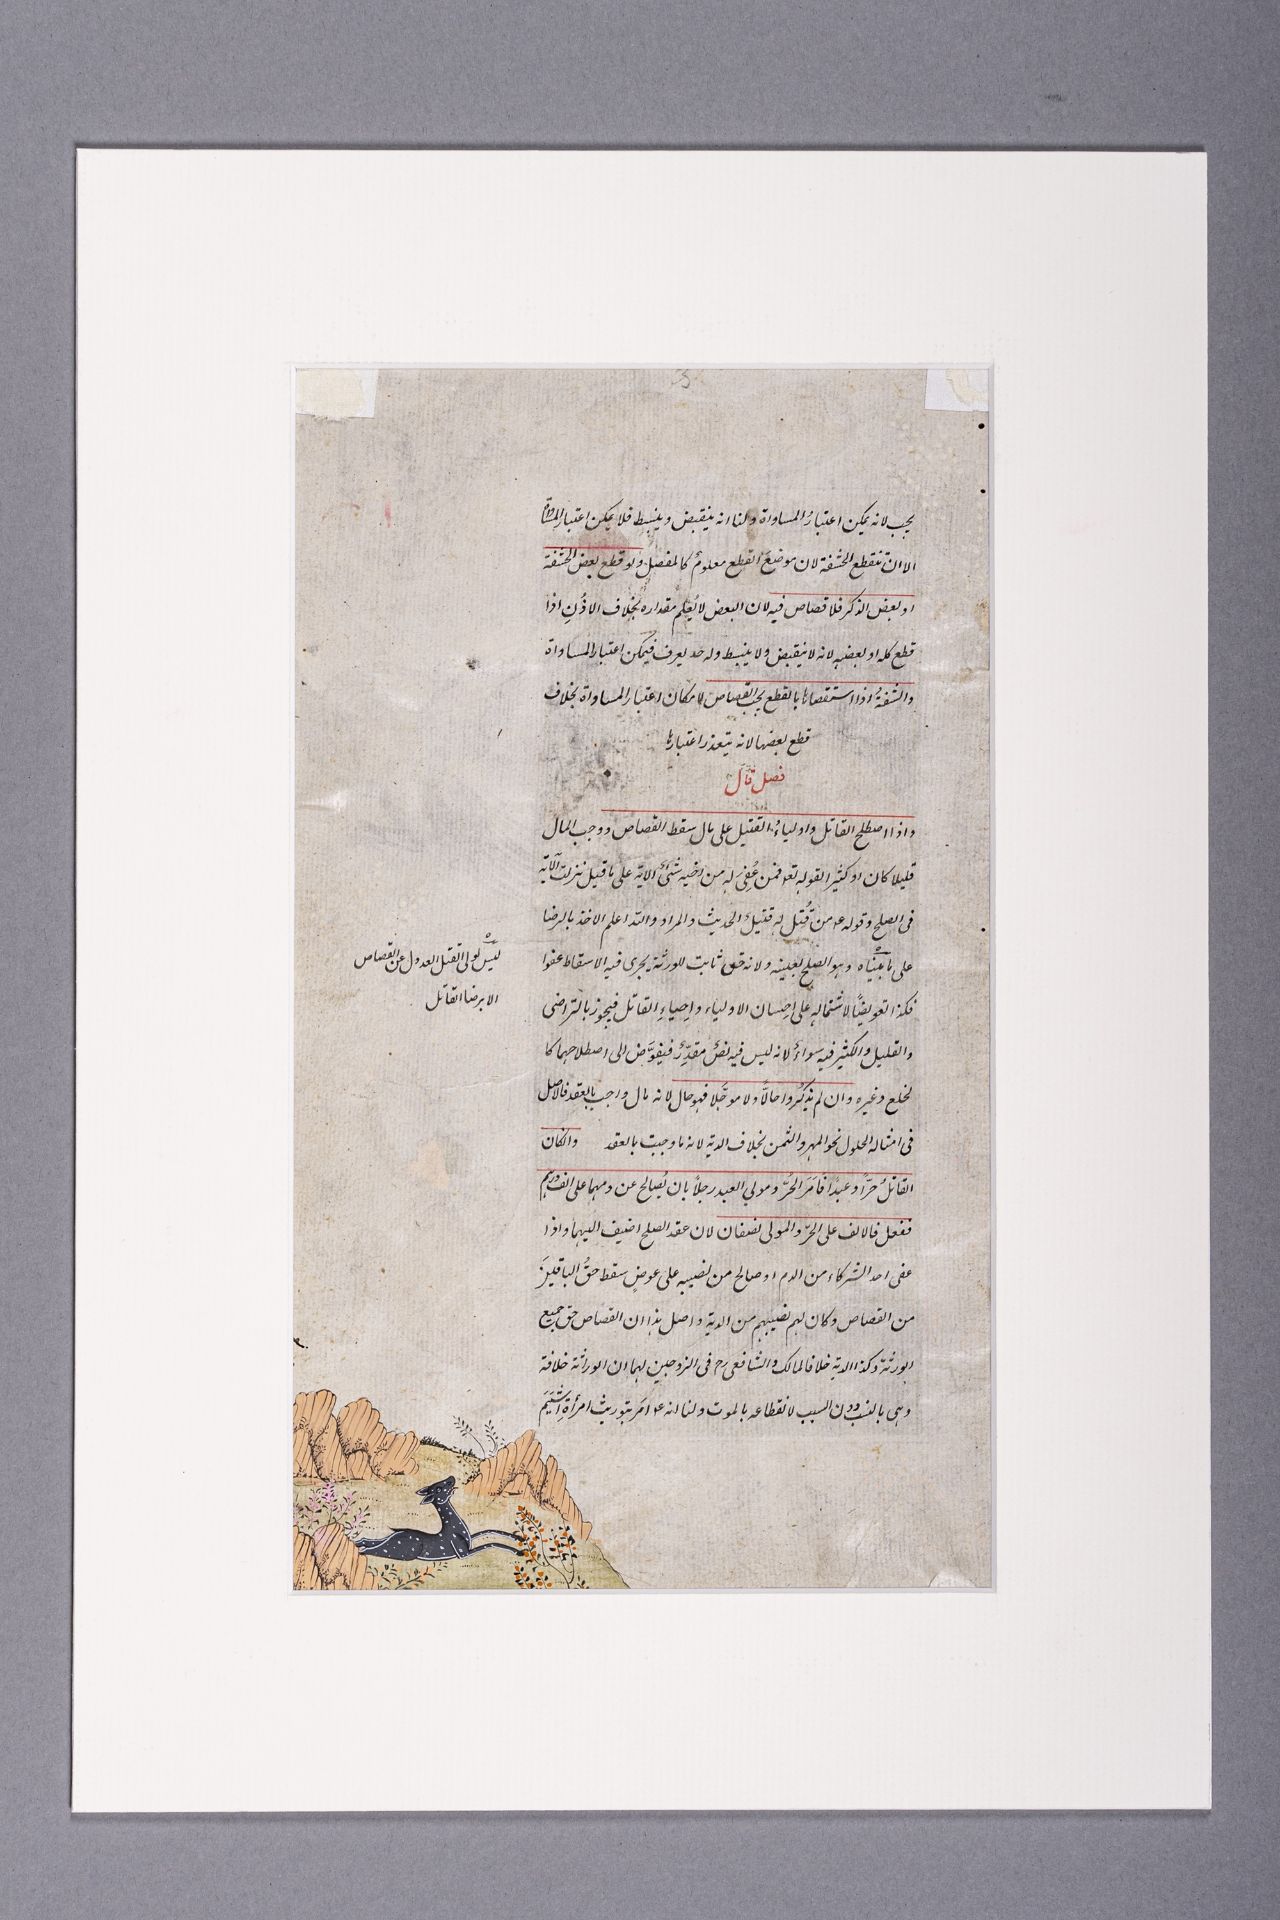 يجب لانه يمكن اعتبارُ المساواة ولنا انه ينقبض وينبسط فلا يمكن اعتبار المساواة
الا ان تقطع الحشفة لان موضعَ القطع معلومٌ كالمفصل ولو قطع بعض الحشفة
او بعض الذكر فلا قصاص فيه لان البعض لا يُعلم مقداره بخلاف الاذُنِ اذا
قطع كله او بعضه لانه لا ينقبض ولا ينبسط وله حد يعرف فيمكن اعتبار المساواة
والشفةُ اذا استقصاها بالقطع يجب القصاص لامكان اعتبار المساواة بخلاف
قطع بعضها لانه يتعذر اعتبارها
فصل قال
واذا اصطلح القاتل واولياءُ القتيل على مال سقط القصاص ووجب المال
قليلا كان او كثيرا لقوله تع فمن عُفِىَ له من اخيه شئ الاية على ما قيل نزلت الآية
فى الصلح وقوله ع م من قُتل له قتيلٌ الحديث والمراد والله اعلم الاخذ بالرضا
على ما بيّناه وهو الصلح بعينه ولانه حق ثابت للورثة يجرى فيه الاسقاط عفوا
فكذا تعويضًا لاشتماله على احسان الاولياء واحياءِ القاتل فيجوز بالتراضى
والقليل والكثير فيه سواءٌ لانه ليس فيه نصٌ مقدِّرٌ فيفوَّض الى اصطلاحهما كا
لخلع وغيره وان لم يذكُروا حالاًّ ولا موجَّلا فهو حال لانه مال واجب بالعقد فالاصل
فى امثاله الحلول نحو المهر والثمن بخلاف الدية لانه ما وجبت بالعقد وانكان
القاتلُ حُرّاً وعبدًا فامَرَ الحُرّ ومولي العبد رجلاً بان يُصالح عن دمهما على الف درهم
ففعل فالالف على الحرّ والمولى نصفان لان عقد الصلح اضيف اليهما واذا
عفى احد الشركاء من الدم او صالح من نصيبه على عوضٍ سقط حقُّ الباقينَ
من القصاص وكان لهم نصيبهم من الدية واصل هذا ان القصاص حق جميع
الورثة وكذا الدية خلافا لمالك والشافعى رح فى الزوجين لهما ان الوراثة خلافة
وهى بالنسب دون السبب لانقطاعه بالموت ولنا انه ع م امَر بتوريث امرأة اشيَم
ليس لولى القتل العدول عن القصاص
الا برضا القاتل